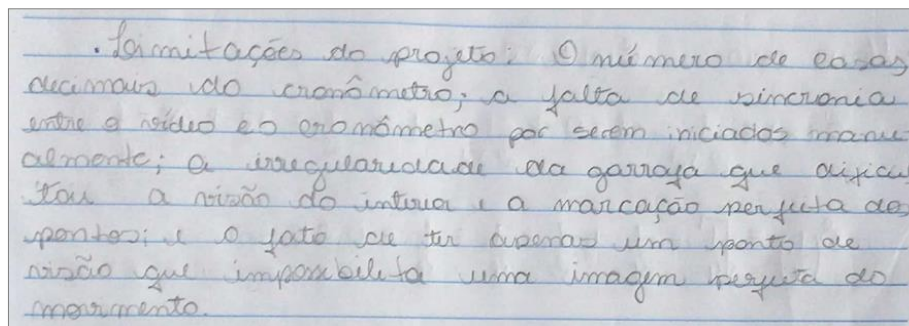 . Limitações do projeto: O número de casas
decimais do cronômetro; a falta de sincronia
entre o vídeo e o cronômetro por serem iniciados manu
almente; a irregularidade da garrafa que dificul
tou a visão do interior e a marcação perfeita dos
pontos; e o fato de ter apenas um ponto de
visão que impossibilita uma imagem perfeita do
movimento.